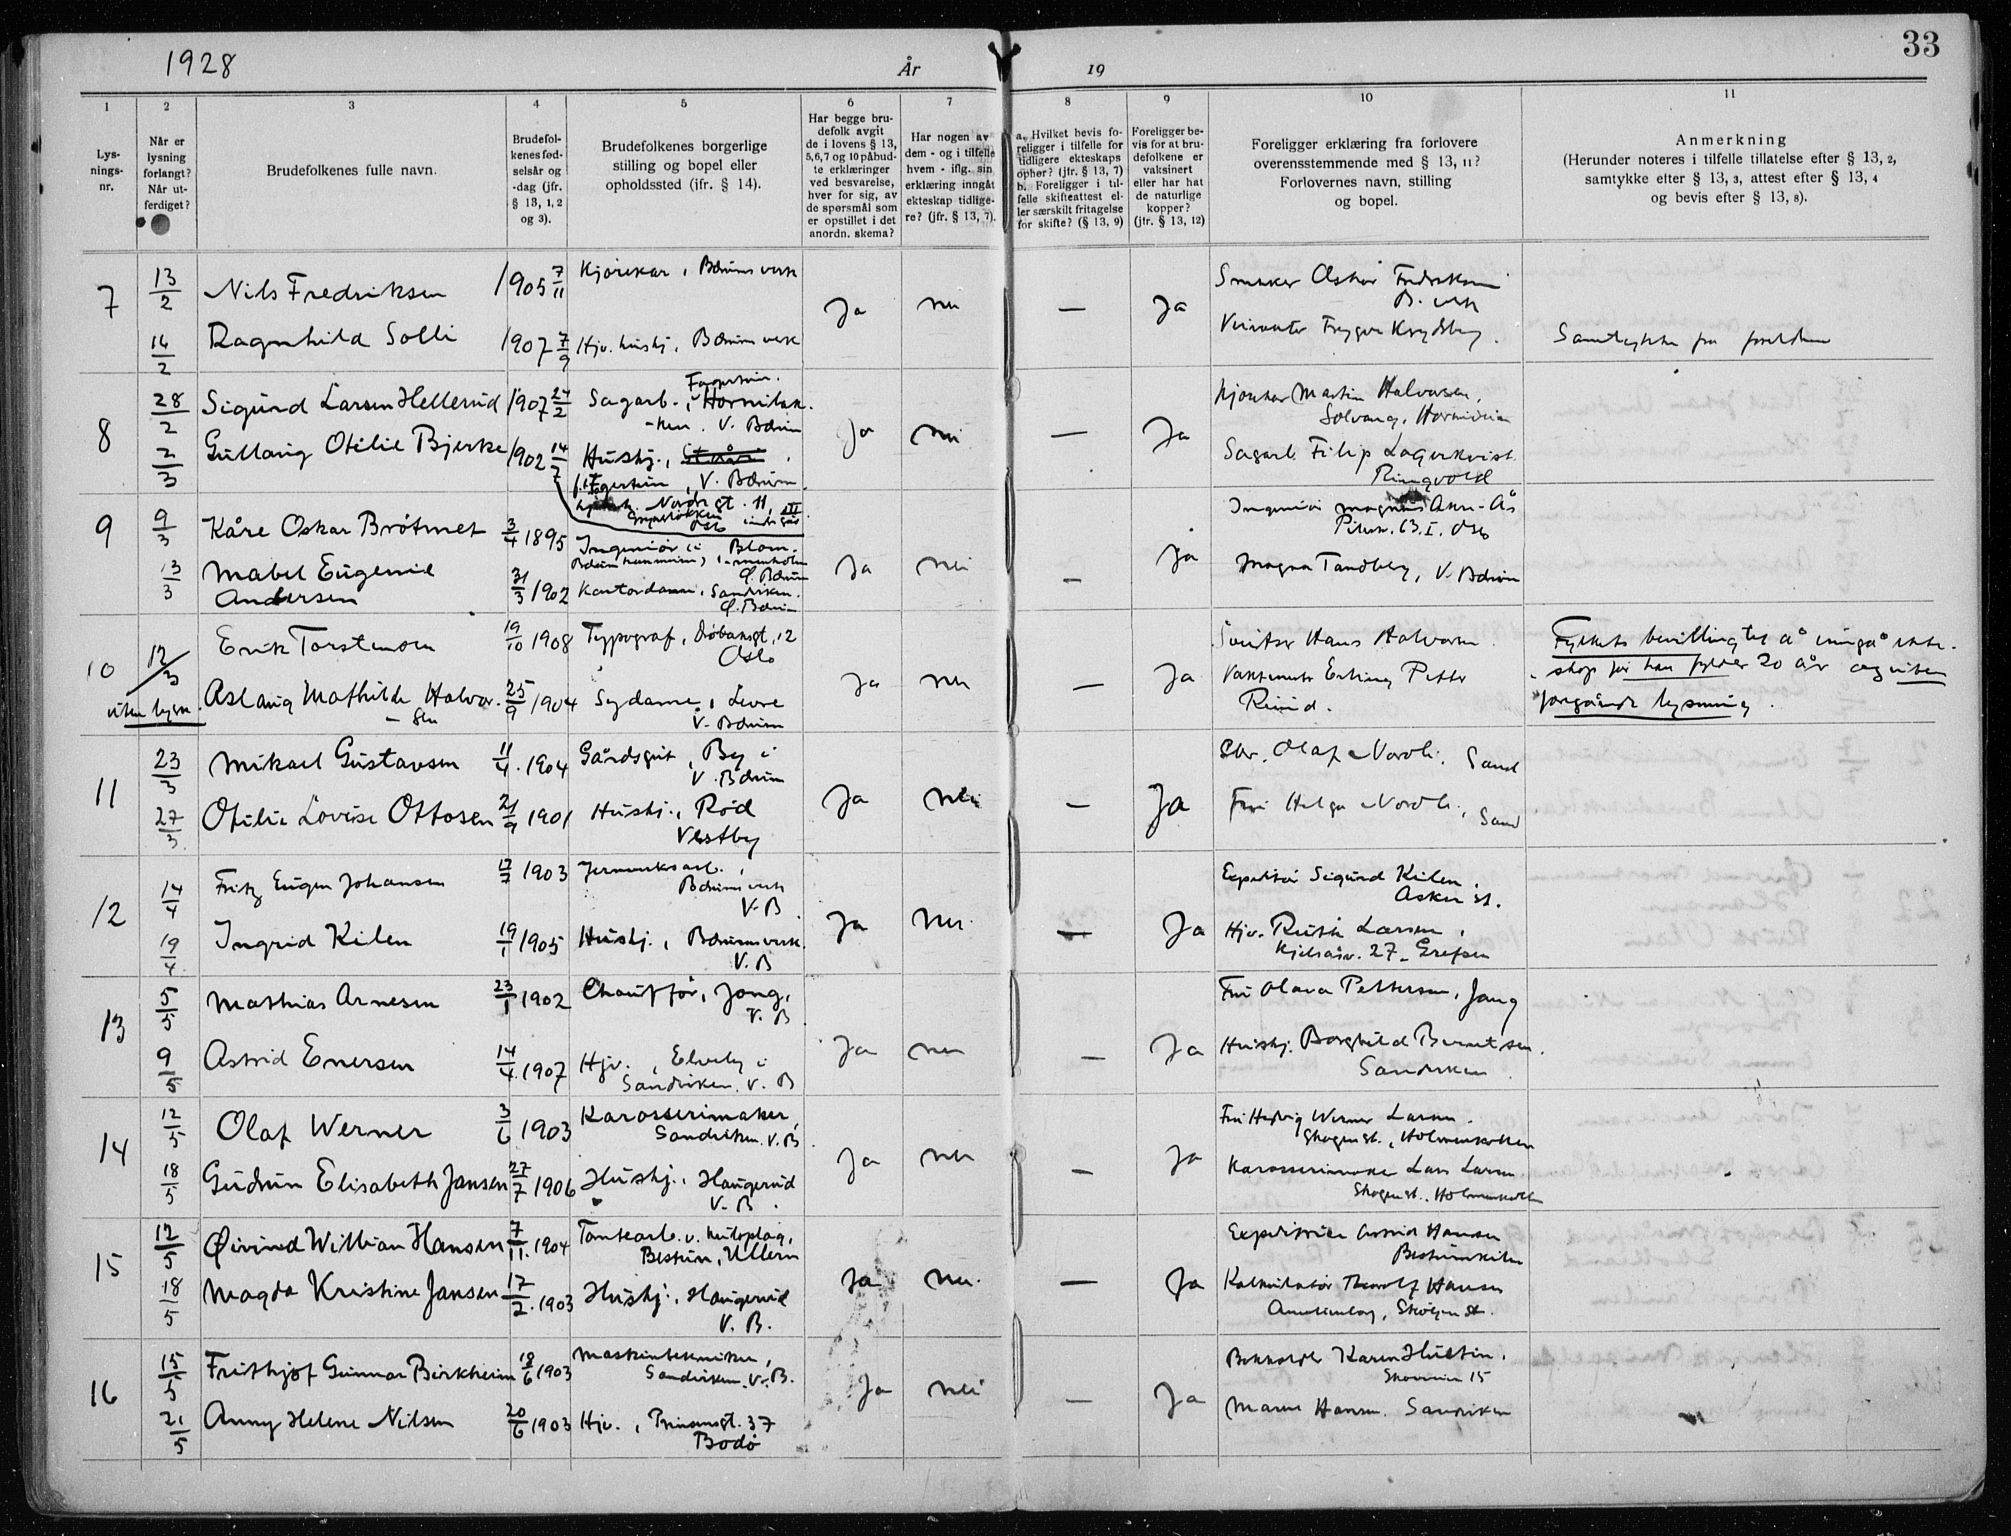 33
1928
År
19
1
2
3
4
5
6
7
8
9
10
11
Lys-
nings-
nr.
Når er
lysning
forlangt?
Når ut-
ferdiget?
Brudefolkenes fulle navn.
Brudefol-
kenes fød-
selsår og
-dag (jfr.
§ 13, 1, 2
og 3).
Brudefolkenes borgerlige
stilling og bopel eller
opholdssted (jfr. § 14).
Har begge bru-
defolk avgit
de i lovens § 13,
5,6,7 og 10 påbud-
te erklæringer
ved besvarelse,
hver for sig, av
de spørsmål som
er opstillet i det
anordn. skema?
Har nogen av
dem - og i tilfelle
hvem - iflg. sin
erklæring inngåt
ekteskap tidlige-
re? (jfr. § 13, 7).
a. Hvilket bevis fo-
religger i tilfelle for
tidligere ekteskaps
ophør? (jfr. § 13, 7)
b. Foreligger i til-
felle skifteattest el-
ler særskilt fritagelse
for skifte? (§ 13, 9)
Foreligger be-
vis for at bru-
defolkene er
vaksinert
eller har hat
de naturlige
kopper?
(jfr. § 13, 12)
Foreligger erklæring fra forlovere
overensstemmende med § 13, 11?
Forlovernes navn, stilling
og bopel.
Anmerkning
(Herunder noteres i tilfelle tillatelse efter § 13, 2,
samtykke efter § 13, 3, attest efter § 13, 4
og bevis efter § 13, 8).
7 13/2 Nils Fredriksen 1905 7/11 Kjørekar, Bærums verk
Ja nei — Ja
Snekker Oskar Fredriksen
B. verk
14/2 Ragnhild Solli 1907 7/9 Hjv. hushj., Bærums verk
Trygve
Samtykke fra foreldrene
8 28/2 Sigurd Larsen Hellerud 1907 24/2 Sagarb.,
V. Bærum
Ja nei — Ja
Martin Halvorsen,
Solvang,
2/3 Gullaug Otilie Bjerke 1902 14/7 Hushj.,
V. Bærum
Sagarb. Filip Lagerkvist
Ringvold
Nordr. gt. 11, III
Oslo
9 9/3 Kåre Oskar Brøtmet 3/4 1895 Ingeniør i
Ø. Bærum
Ja nei — Ja
Ingeniør Magnus
63. I. Oslo
13/3 Mabel Eugenie
Andersen 31/3 1902 Kontordame, Sandviken.
Ø. Bærum
Magna Tandberg, V. Bærum
10 12/3 Erik Torstensen 19/10 1908 Typograf, Drøbaksgt. 12
Oslo
Ja nei — Ja
Hans Halvorsen
uten lysn. Aslaug Mathilde Halvor-
-sen 25/9 1904 Sydame, Levre
V. Bærum
Vaktmester Erling Petter
Ruud.
Fylkets bevilling til å inngå ekte-
-skap før han fyller 20 år og uten
foregående lysning.
11 23/3 Mikael Gustavsen 11/4. 1904 Gårdsgut, By i
V. Bærum
Ja nei — Ja
Olaf Nordli. Sand
27/3 Otilie Lovise Ottosen 21/9 1901 Hushj., Rød
Vestby
Fru Helga Nordli, Sand
12 14/4 Fritz Eugen Johansen 17/7 1903 Jernverksarb.,
Bærums verk
V. B.
Ja nei — Ja
Expeditør Sigurd Kilen,
Asker st.
19/4 Ingrid Kilen 19/1 1905 Hushj., Bærums verk.
V. B
Hjv. Ruth Larsen,
Kjelsåsv. 27. Grefsen
13 5/5 Mathias Arnesen 23/1 1902 Chauffør, Jong,
V. B
Ja nei — Ja
Fru Olava Pettersen, Jong
9/5 Astrid Enersen 14/4 1907 Hjv., Elveby i
Sandviken. V. B
Hushj. Borghild Berntsen.
Sandviken
14 12/5 Olaf Werner 3/6 1903 Karosserimaker,
Sandviken. V. B
Ja nei — Ja
Fru Hedvig Werner Larsen.
Skogen st., Holmenkollen
18/5 Gudrun Elisabeth Jansen 27/7 1906 Hushj., Haugerud
V. B.
Karosserimaker Lars Larsen
Skogen st. Holmenkollen
15 12/5 Øivind Willian Hansen 7/11. 1904 Tankearb. v.
Bestun, Ullern
Ja nei. — Ja
Expeditrice Astrid Hansen
Bestumkilen
18/5 Magda Kristine Jansen 17/2. 1903 Hushj., Haugerud
V. B.
Kalkulatør Thorolf Hansen
Skøyen st.
16 15/5 Frithjof Gunnar Birkheim 18/6 1903 Maskintekniker,
Sandviken. V. B.
Ja nei — Ja
Karen Hultin.
15
21/5 Anny Helene Nilsen 20/6 1903 Hjv., Prinsensgt. 37
Bodø
Hansen. Sandviken